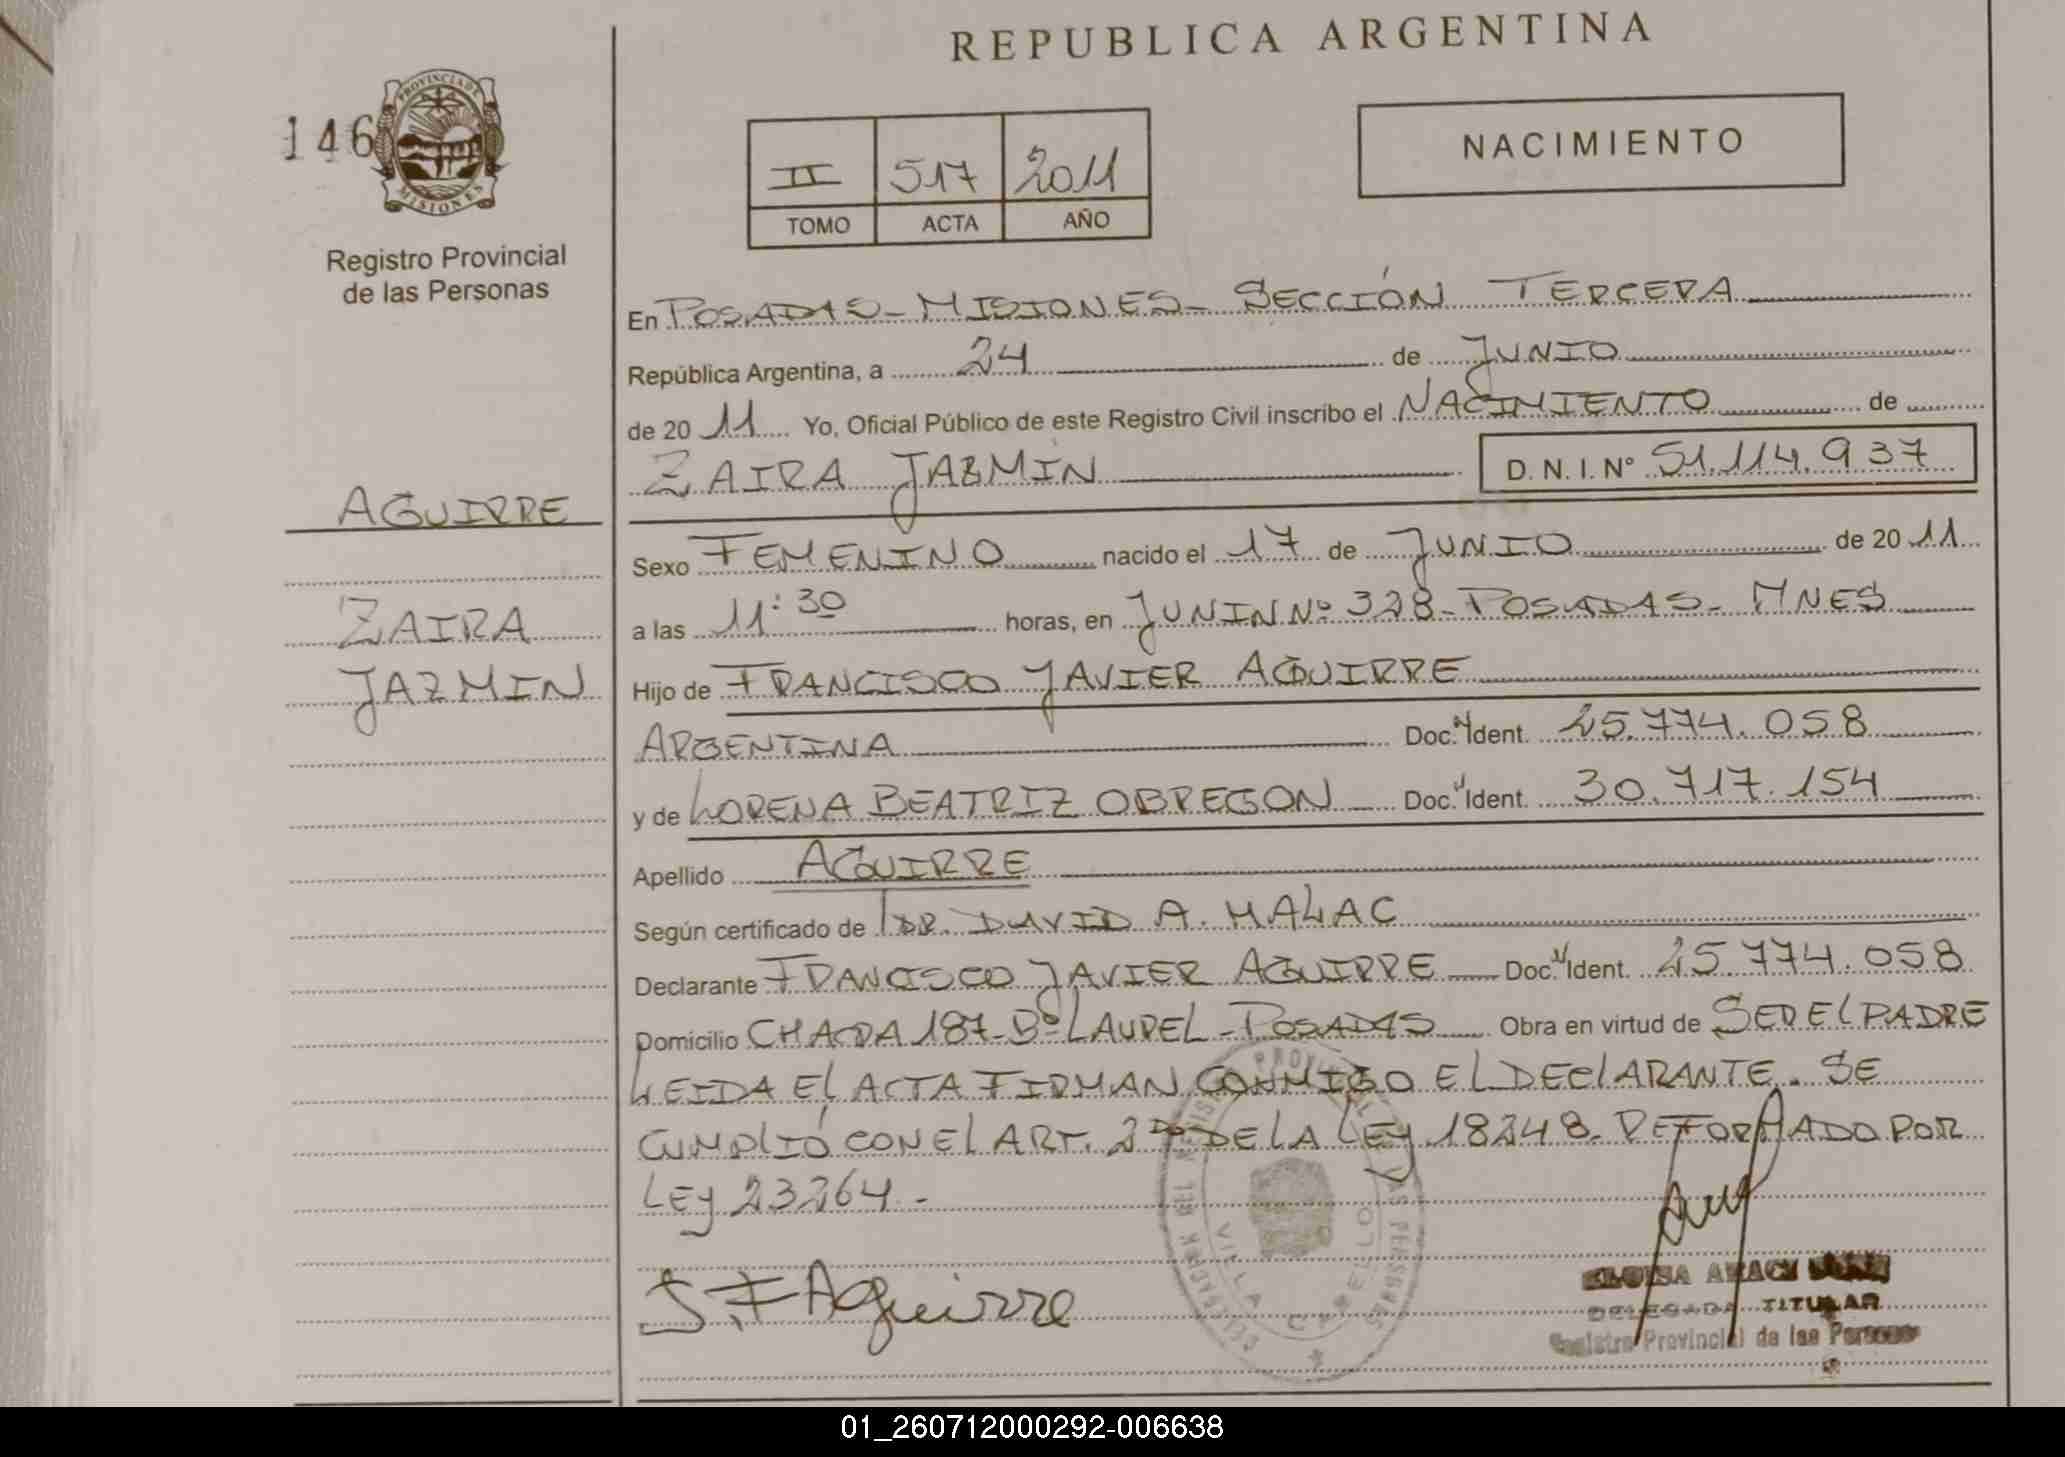 REPUBLICA ARGENTINA
146
PROVINCIA DE
MISIONES
Registro Provincial
de las Personas
II 517 2011
TOMO ACTA AÑO
NACIMIENTO
En POSADAS-MISIONES- SECCIÓN TERCERA
República Argentina, a 24 de JUNIO
de 20 11 Yo, Oficial Público de este Registro Civil inscribo el NACIMIENTO de
ZAIRA JAZMIN D.N.I. Nº 51.114.937
AGUIRRE
ZAIRA
JAZMIN
Sexo FEMENINO nacido el 17 de JUNIO de 20 11
a las 11:30 horas, en JUNIN Nº 328-POSADAS- MNES
Hijo de FRANCISCO JAVIER AGUIRRE
ARGENTINA Doc. Ident. 25.774.058
y de LORENA BEATRIZ OBREGON Doc. Ident. 30.717.154
Apellido AGUIRRE
Según certificado de DR. DAVID A. MALAC
Declarante FRANCISCO JAVIER AGUIRRE Doc. Ident. 25.774.058
Domicilio CHACRA 187-Bº LAUREL-POSADAS Obra en virtud de SER EL PADRE
LEIDA EL ACTA FIRMAN CONMIGO EL DECLARANTE. SE
CUMPLIÓ CON EL ART. 2do DE LA LEY 18248- REFORMADO POR
LEY 23264.-
J.F Aguirre
VILLA CABELLO
DELEGADA TITULAR
Registro Provincial de las Personas
01_260712000292-006638